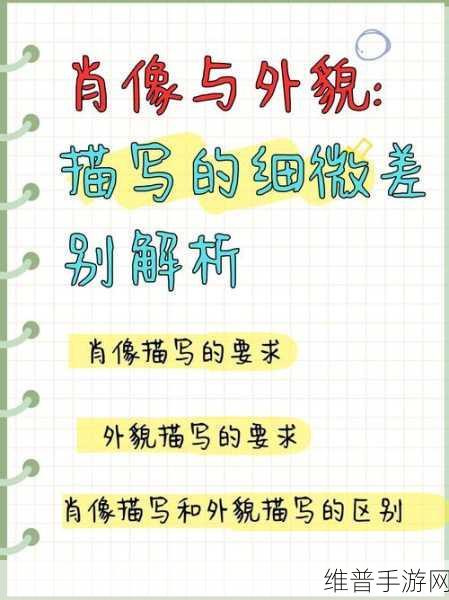 肖像与外貌:
描写的细微差
别解析
肖像描写的要求
外貌描写的要求
肖像描写和外貌描写的区别
维普手游网